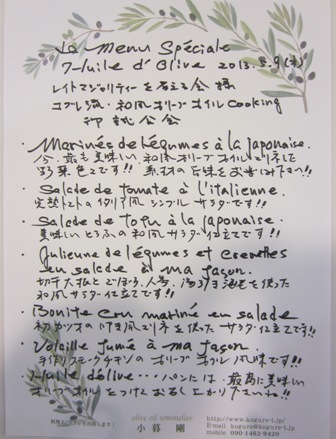 La Menu Spéciale
l'Huile d'Olive 2013.5.9(木)
レイトマジョリティーを考える会 様
コグレ流・和風オリーブオイルcooking
御試食会
・Marinés de légumes à la japonaise.
今、最も美味しい和風オリーブオイルでマリネした
彩菜色々です!! 素材の旨味をお楽しみ下さい!!
・Salade de tomate à l'italienne.
完熟トマトのイタリア風シンプルサラダです!!
・Salade de tofu à la japonaise.
美味しいとうふの和風サラダ仕立てです!!
・Julienne de légumes et crevettes
en salade à ma façon.
切干大根とごぼう、人参、海老を使った
和風サラダ仕立てです!!
・Bonite cru mariné en salade
初カツオのたたき風マリネを使ったサラダ仕立てです!!
・Volaille fumé à ma façon.
手作りスモークチキンのオリーブオイル風味です!!
・Huile d'olive... パンには最高に美味しい
オリーブオイルをつけてお召し上がり下さいね!!
olive oil sommelier
小暮 剛
http://www.kogure-t.jp/
E-mail k@kogure-t.jp
mobile 090-1462-9420